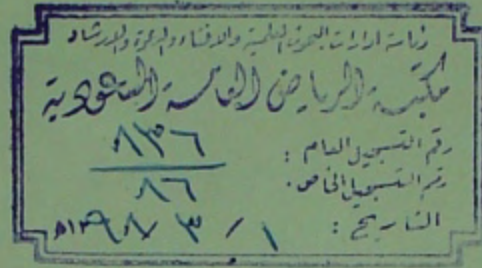 رئاسة ادارات البحوث العلمية والافتاء والدعوة والارشاد
مكتبة الرياض العامة السعودية
رقم التسجيل العام : ٨٣٦
رقم التسجيل الخاص : ٨٦
التاريخ : ١ / ٣ / ١٣٩٨هـ